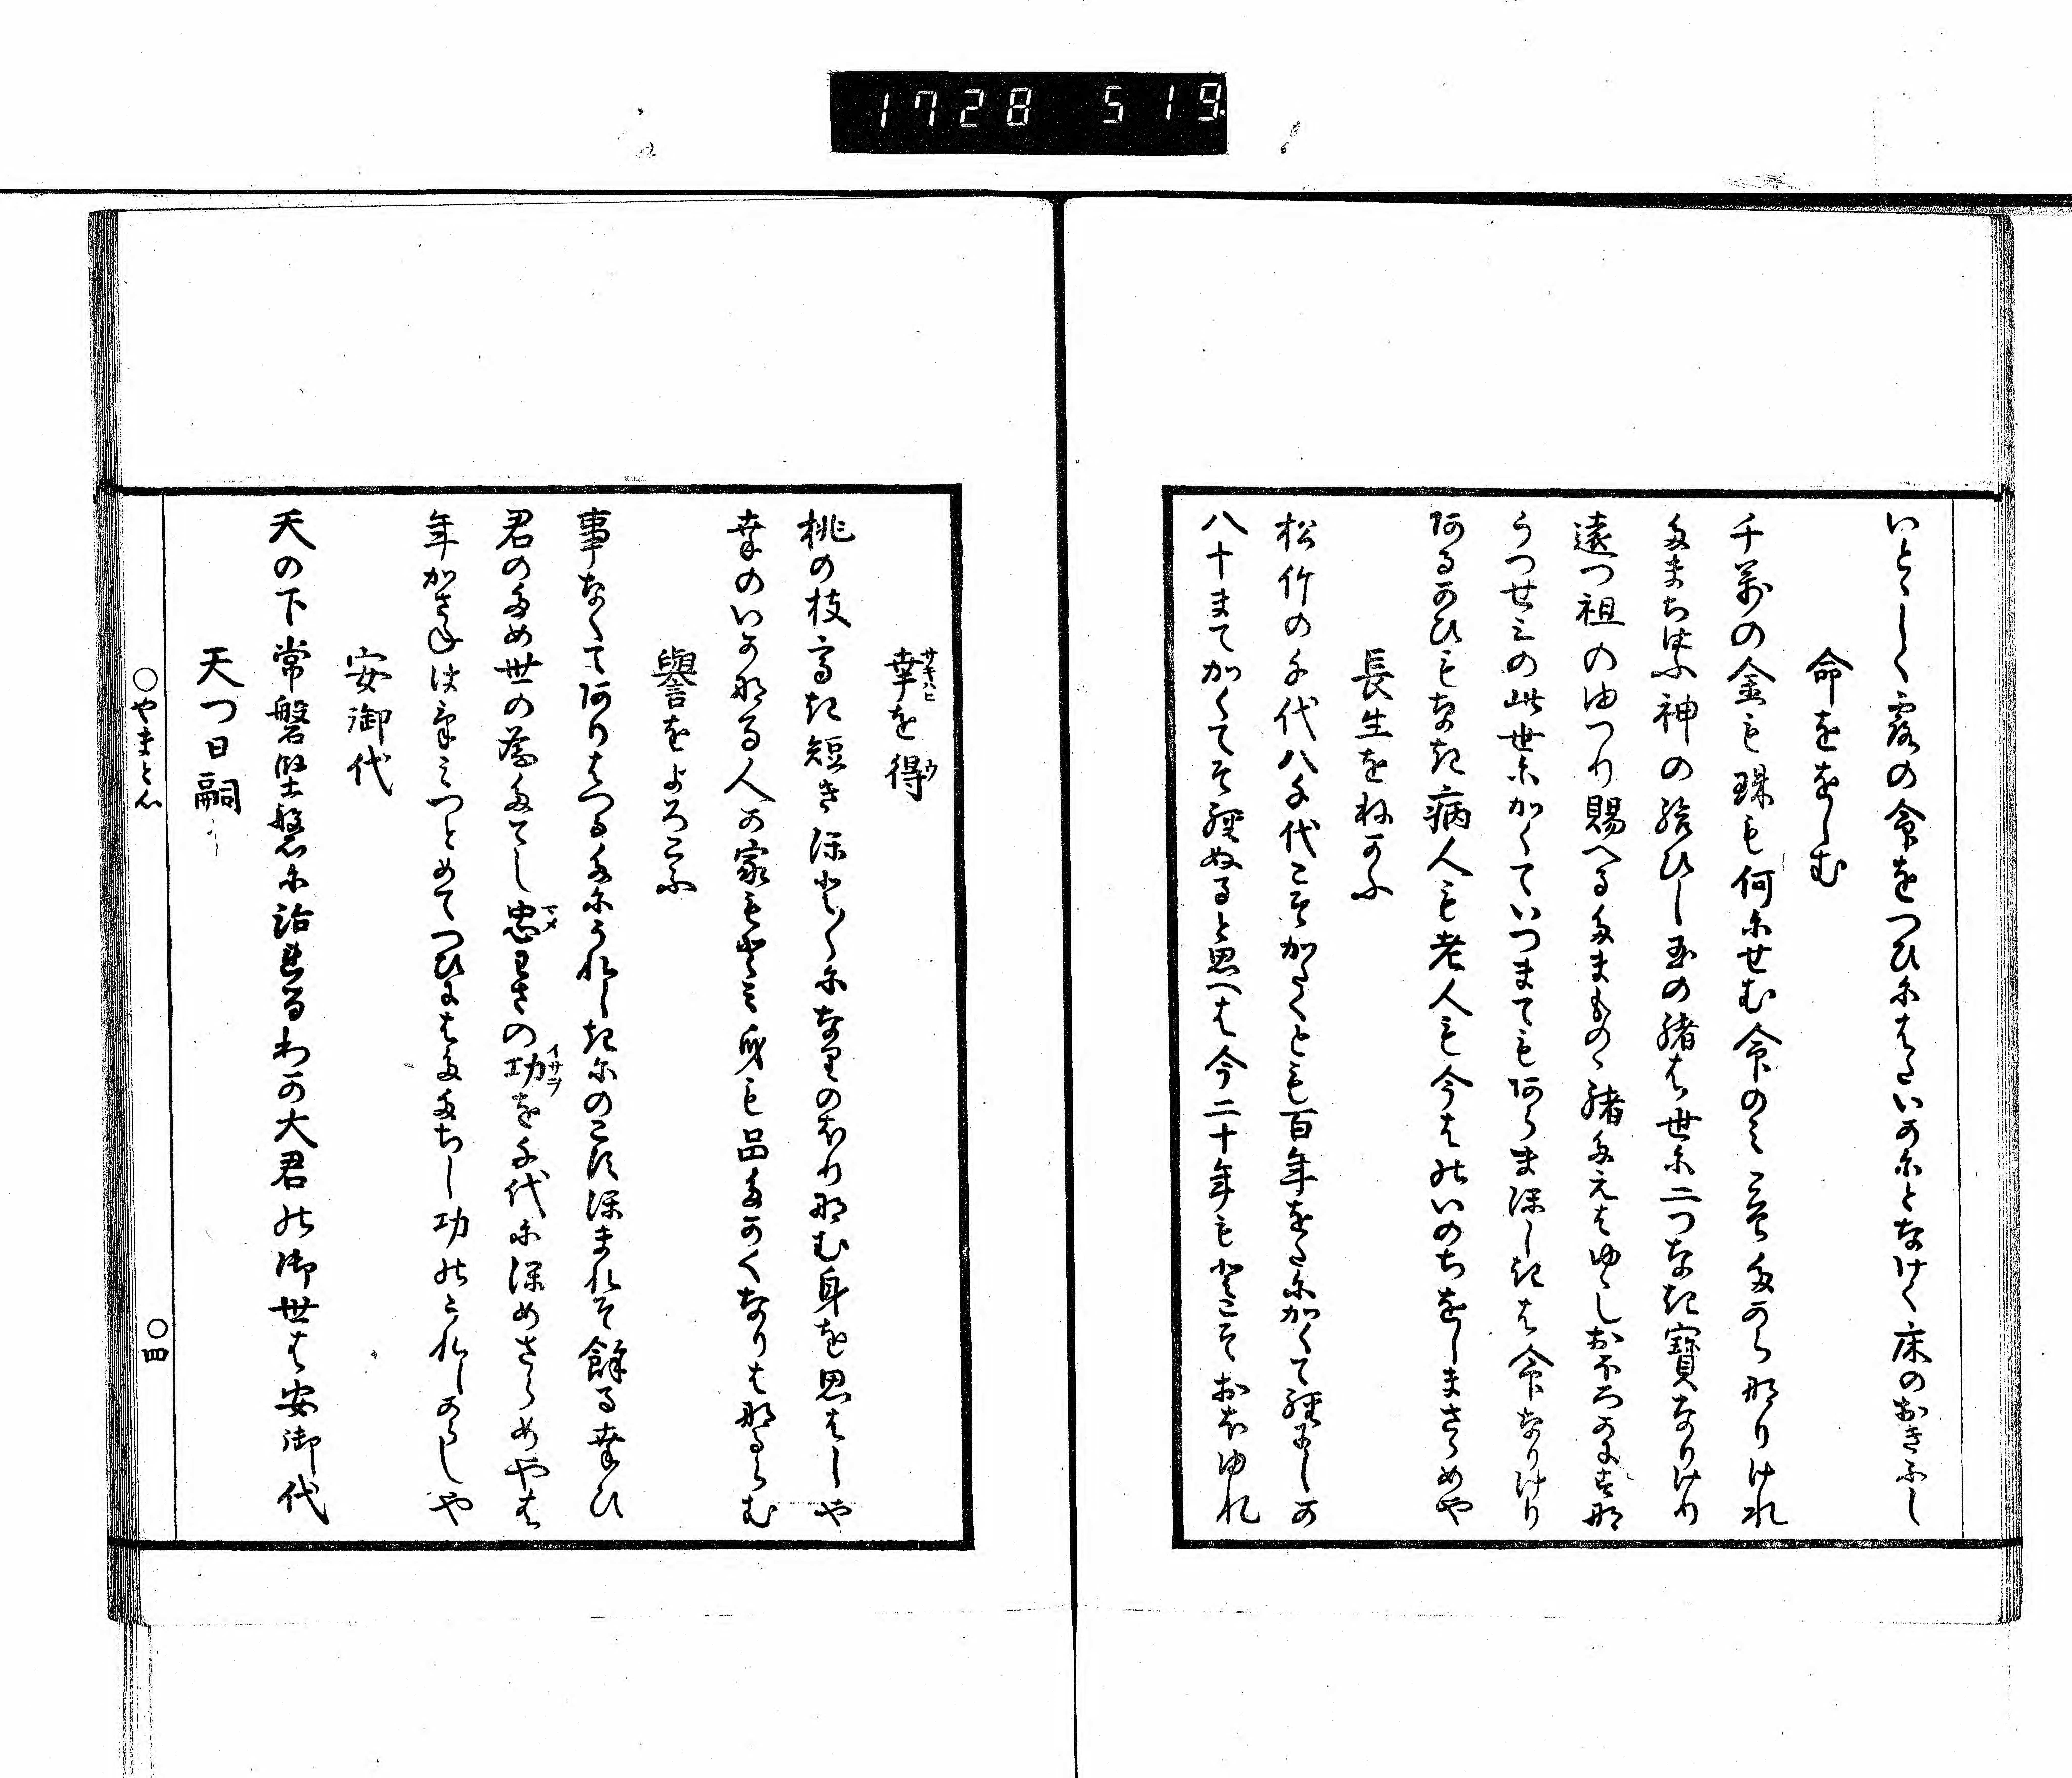 1728 519
いとゝしく露の命をつひにはいかにとなけく床のおきふし
命ををしむ
千萬の金も珠も何にせむ命のみこそたからなりけれ
たまちはふ神の結ひし玉の緒は世に二つなき寶なりけり
遠つ祖のゆつり賜へるたまものゝ緒たえはゆゝしおほろかにすな
うつせみの此世にかくていつまてもあらまほしきは命なりけり
あるかひもなき病人も老人も今はのいのちをしまさらめや
長生をねかふ
松竹の千代八千代こそかたくとも百年をたにかくて經ましか
八十まてかくてそ經ぬると思へは今二十年もとこそおほゆれ
幸を得
サキハヒ ウ
桃の枝高き短きほとほとになりのほりなむ身を思はしや
幸のいかなる人か家もとみ身も品たかくなりはなるらむ
譽をよろこふ
事なくてありはつるたにうれしきにのこすほまれそ餘る幸ひ
君のため世の為たてし忠わさの功を千代にほめさらめやは
マメ イサヲ
年かさねいそしみつとめてつひにはたたちし功のうれしからしや
安御代
天の下常磐堅磐に治まるわか大君の御世は安御代
天つ日嗣
○やまと心
○四